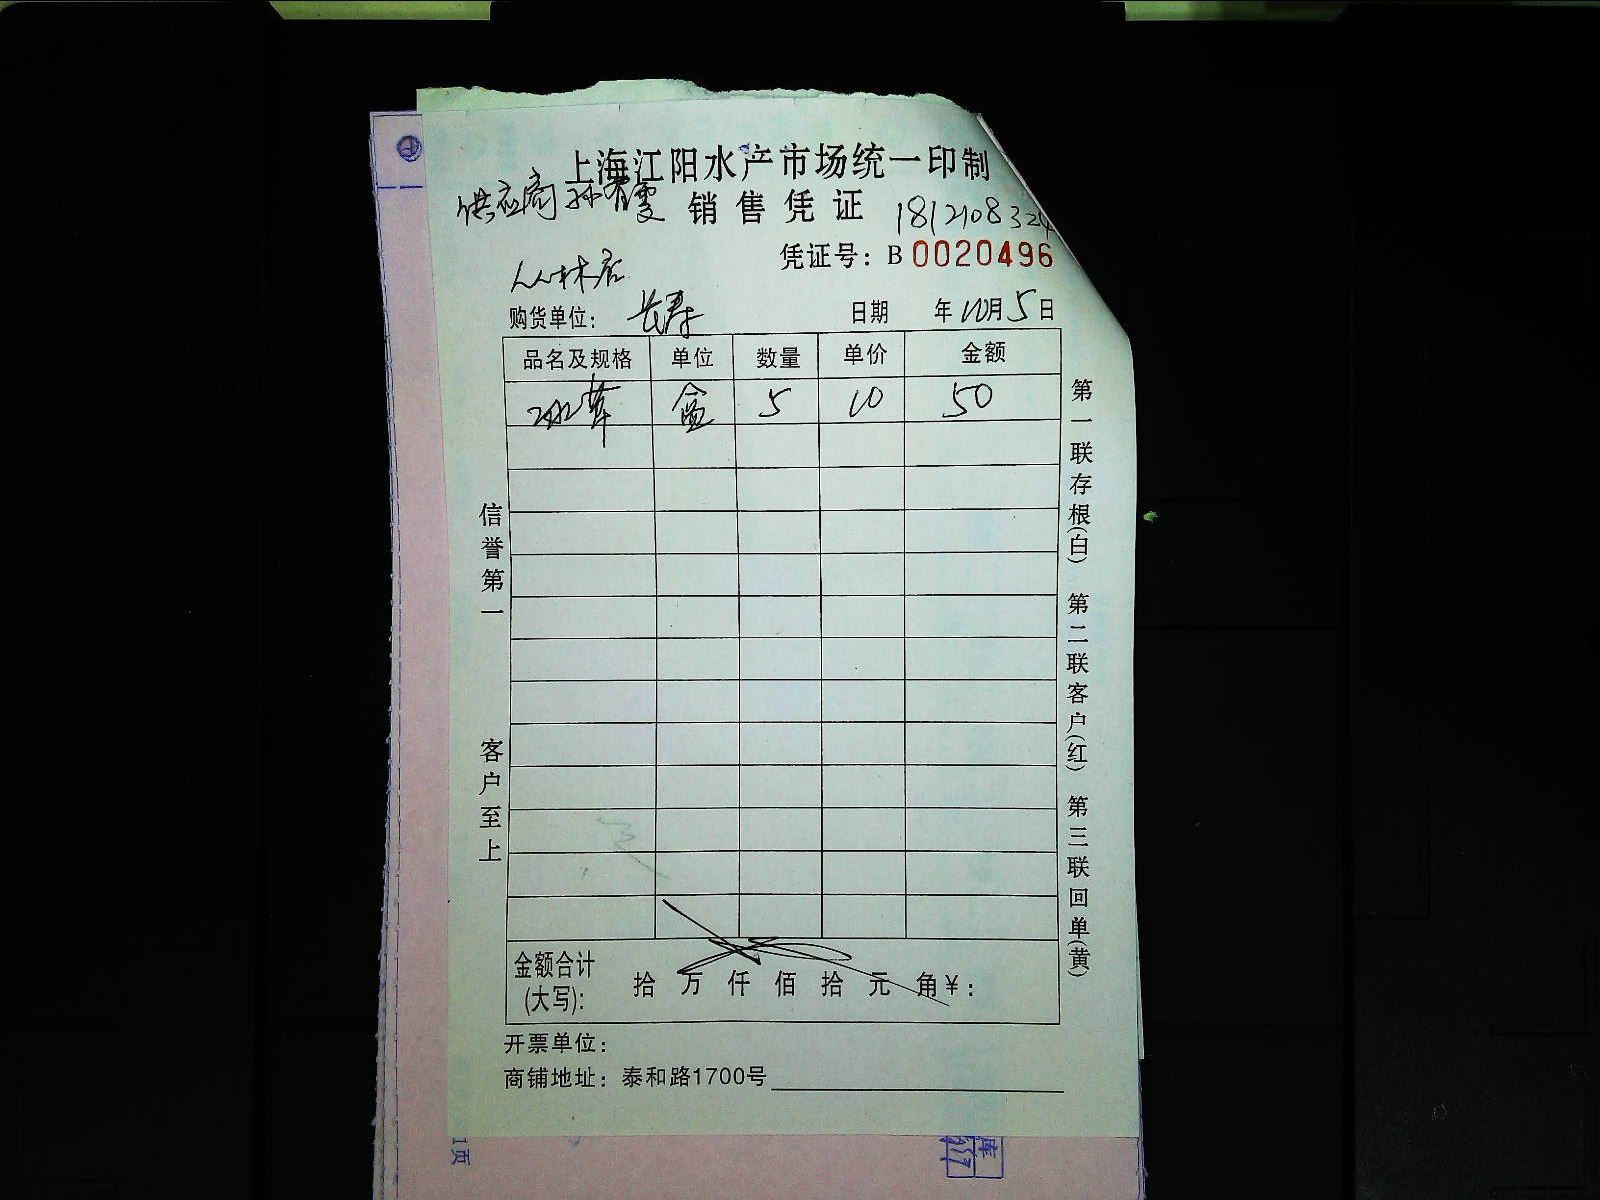 上海江阳水产市场统一印制
供应商 孙
销售凭证
凭证号：B 0020496
林店
购货单位： 长寿 日期 年10月5日
品名及规格 单位 数量 单价 金额
冰草 盒 5 10 50
信誉第一
客户至上
第一联存根(白) 第二联客户(红) 第三联回单(黄)
金额合计
(大写): 拾 万 仟 佰 拾 元 角 ¥:
开票单位：
商铺地址：泰和路1700号
1页
库